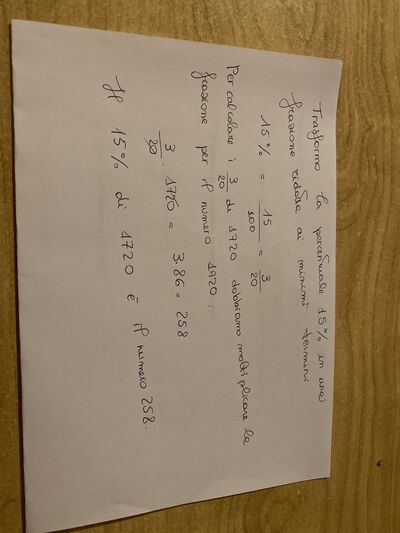 Trasformo la percentuale 15% in una
frazione ridotta ai minimi termini:
15% = 15/100 = 3/20
Per calcolare i 3/20 di 1720 dobbiamo moltiplicare la
frazione per il numero 1720:
3/20 · 1720 = 3 · 86 = 258
Il 15% di 1720 è il numero 258.